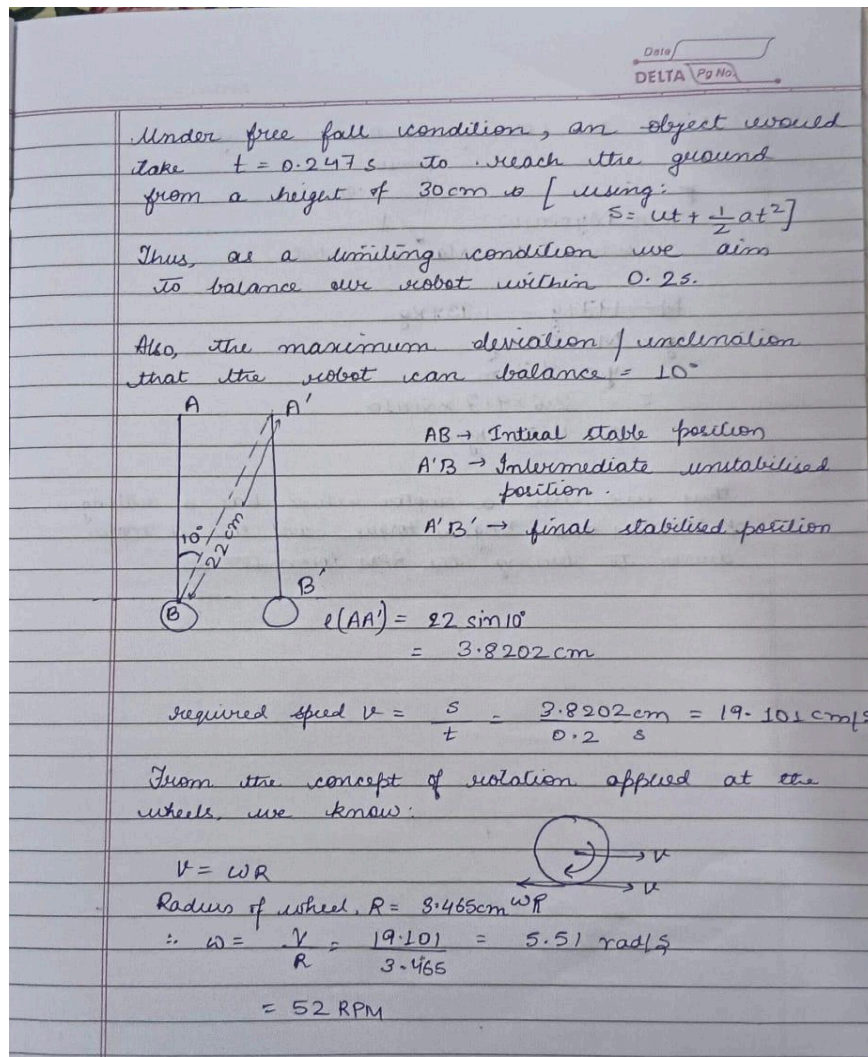 Date
DELTA Pg No.
Under free fall condition, an object would
take t = 0.247s to reach the ground
from a height of 30cm [using:
s = ut + 1/2 at²]
Thus, as a limiting condition we aim
to balance our robot within 0.2s.
Also, the maximum deviation / inclination
that the robot can balance = 10°
A A'
AB → Intiral stable position
A'B → Intermediate unstabilised
position.
A'B' → final stabilised position
10°
22cm
B B'
l(AA') = 22 sin10°
= 3.8202 cm
required speed v = s/t = 3.8202cm/0.2 s = 19.101 cm/s
From the concept of rotation applied at the
wheels, we know:
v = ωR
→ v
→ v
ωR
Radius of wheel, R = 3.465cm
∴ ω = v/R = 19.101/3.465 = 5.51 rad/s
= 52 RPM